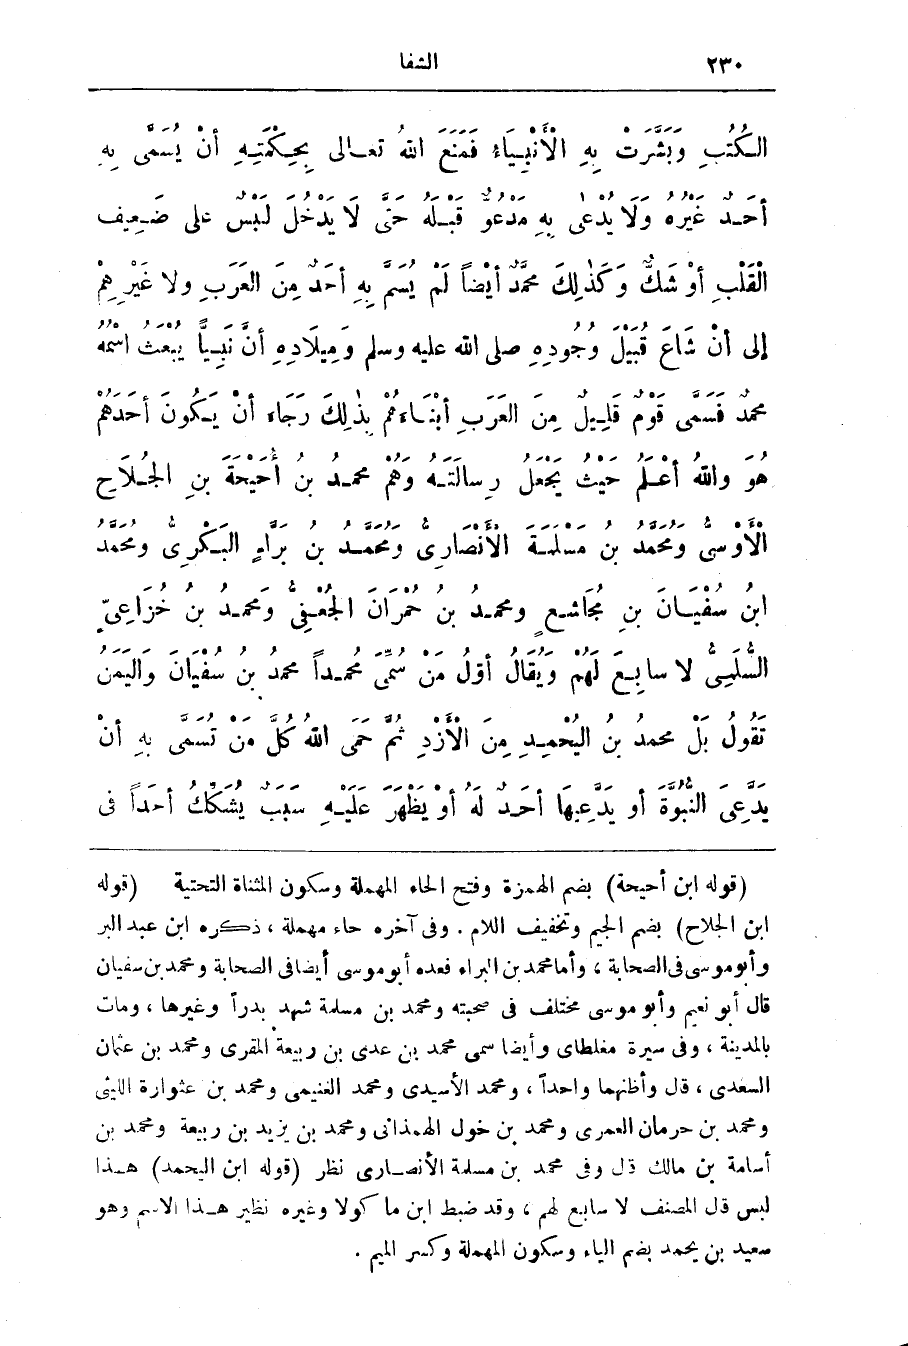 ٢٣٠ الشفا
الْكُتُبِ وَبَشَّرَتْ بِهِ الْأَنْبِيَاءُ فَمَنَعَ اللهُ تعالى بِحِكْمَتِهِ أَنْ يُسَمَّى بِهِ
أَحَدٌ غَيْرُهُ وَلَا يُدْعَى بِهِ مَدْعُوٌّ قَبْلَهُ حَتَّى لَا يَدْخُلَ لَبْسٌ على ضَعِيفِ
الْقَلْبِ أَوْ شَكٌّ وَكَذٰلِكَ مُحَمَّدٌ أَيْضاً لَمْ يُسَمَّ بِهِ أَحَدٌ مِنَ الْعَرَبِ ولا غَيْرِهِمْ
إلى أَنْ شَاعَ قُبَيْلَ وُجُودِهِ صلى الله عليه وسلم وَمِيلَادِهِ أَنَّ نَبِيًّا يُبْعَثُ اسْمُهُ
مُحَمَّدٌ فَسَمَّى قَوْمٌ قَلِيلٌ مِنَ الْعَرَبِ أَبْنَاءَهُمْ بِذٰلِكَ رَجَاءَ أَنْ يَكُونَ أَحَدُهُمْ
هُوَ واللهُ أَعْلَمُ حَيْثُ يَجْعَلُ رِسَالَتَهُ وَهُمْ مُحَمَّدُ بْنُ أُحَيْحَةَ بنِ الْجُلَاحِ
الْأَوْسِىُّ وَمُحَمَّدُ بنُ مَسْلَمَةَ الْأَنْصَارِىُّ وَمُحَمَّدُ بن بَرَّاءٍ البَكْرِىُّ وَمُحَمَّدُ
ابنُ سُفْيَانَ بنِ مُجَاشِعٍ ومحمدُ بنُ حُمْرَانَ الْجُعْفِىُّ وَمحمدُ بنُ خُزَاعِىٍّ
السُّلَمِىُّ لا سابِعَ لَهُمْ وَيُقَالُ أَوَّلُ مَنْ سُمِّىَ مُحَمَّداً محمدُ بنُ سُفْيَانَ وَالْيَمَنُ
تَقُولُ بَلْ محمدُ بنُ الْيُحْمِدِ مِنَ الْأَزْدِ ثُمَّ حَمَى اللهُ كُلَّ مَنْ تَسَمَّى بِهِ أَنْ
يَدَّعِىَ النُّبُوَّةَ أو يَدَّعِيَهَا أَحَدٌ لَهُ أو يَظْهَرَ عَلَيْهِ سَبَبٌ يُشَكِّكُ أَحَداً فى
(قوله ابن أحيحة) بضم الهمزة وفتح الحاء المهملة وسكون المثناة التحتية (قوله
ابن الجلاح) بضم الجيم وتخفيف اللام . وفى آخره حاء مهملة ، ذكره ابن عبد البر
وأبو موسى فى الصحابة ، وأما محمد بن البراء فعده أبو موسى أيضا فى الصحابة ومحمد بن سفيان
قال أبو نعيم وأبو موسى مختلف فى صحبته ومحمد بن مسلمة شهد بدراً وغيرها ، ومات
بالمدينة ، وفى سيرة مغلطاى وأيضا سمى محمد بن عدى بن ربيعة المقرى ومحمد بن عثمان
السعدى ، قال وأظنهما واحداً ، ومحمد الأسيدى ومحمد الفنيمى ومحمد بن عتوارة الليثى
ومحمد بن حرمان العمرى ومحمد بن خول الهمذانى ومحمد بن يزيد بن ربيعة ومحمد بن
أسامة بن مالك قال وفى محمد بن مسلمة الأنصارى نظر (قوله ابن اليحمد) هذا
ليس قال المصنف لا سابع لهم ، وقد ضبط ابن ما كولا وغيره نظير هذا الاسم وهو
سعيد بن يحمد بضم الياء وسكون المهملة وكسر الميم .